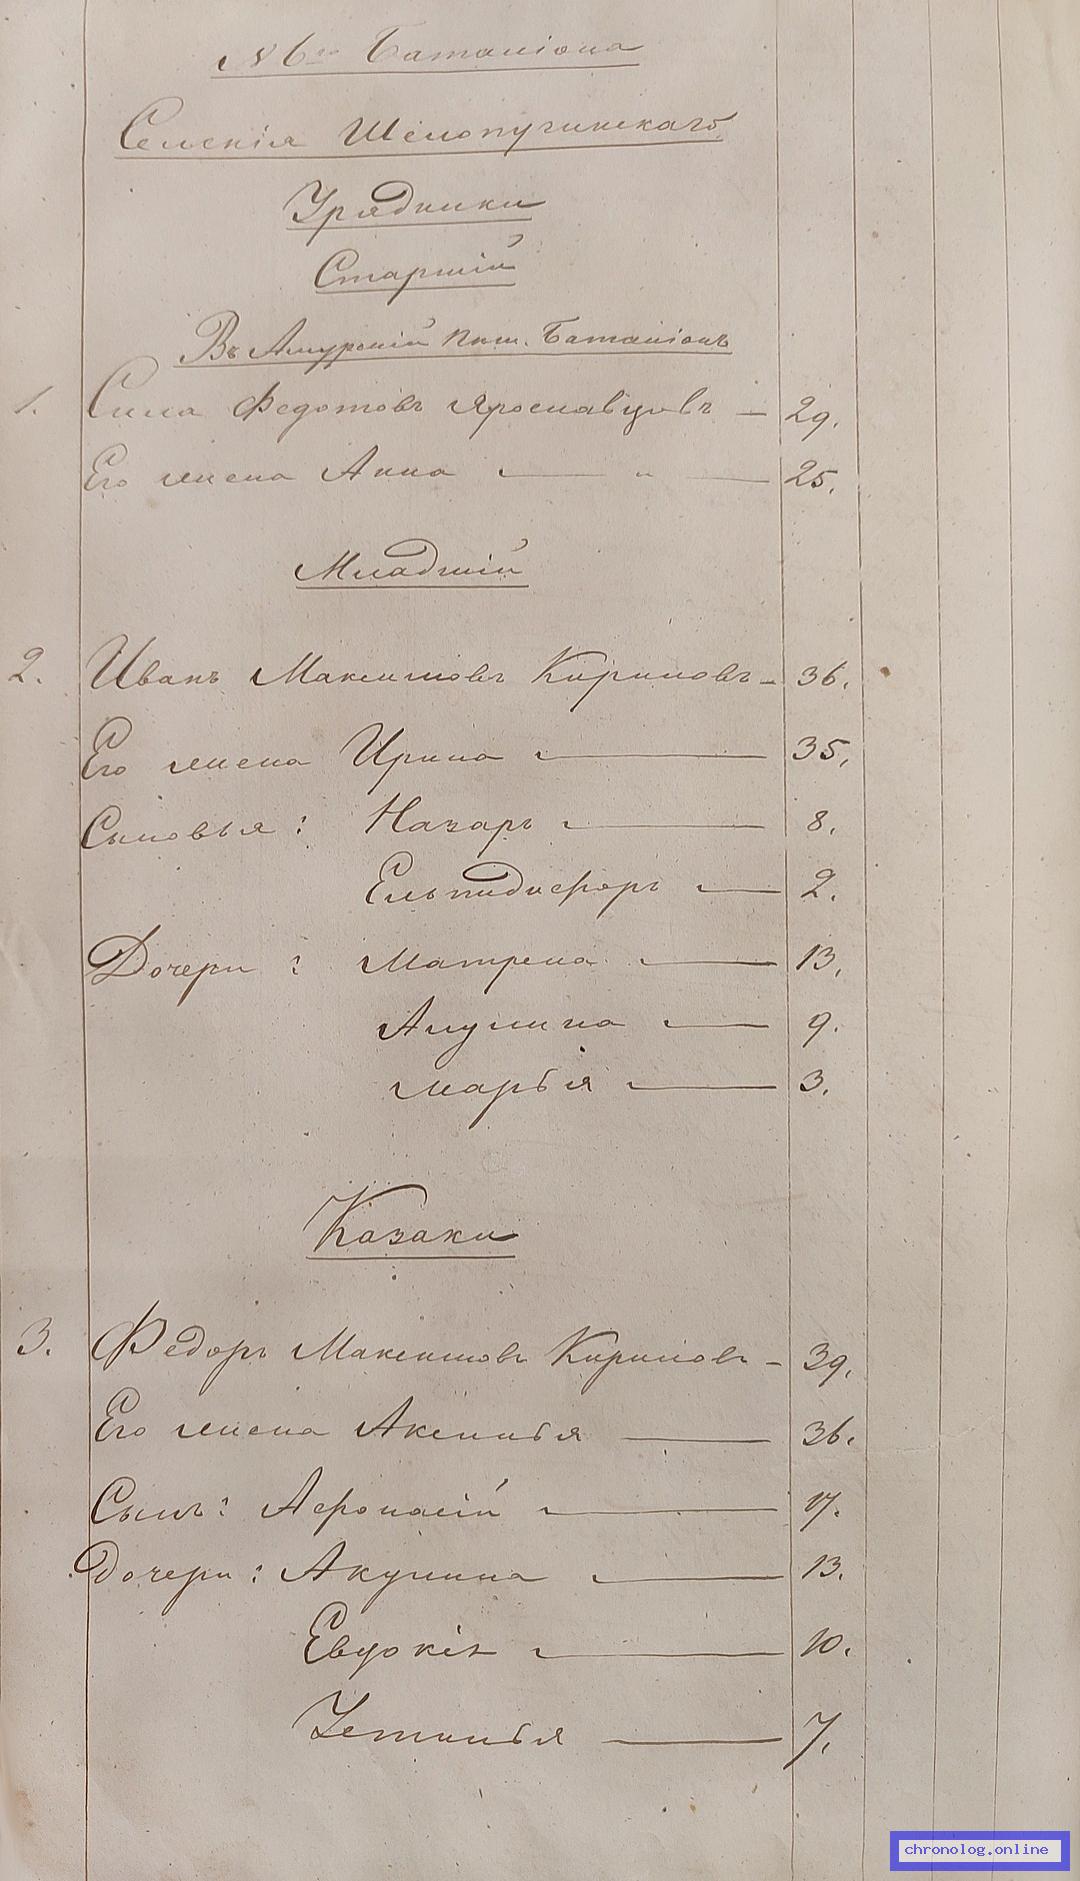 № 6го Баталіона
Селенія Шелопугинскаго
Урядники
Старшій
Въ Амурскій Пѣш. Баталіонъ
1. Сила Федотовъ Ярославцовъ — 29.
Его жена Анна — " — 25.
Младшій
2. Иванъ Максимовъ Кириловъ — 36.
Его жена Ирина — 35.
Сыновья: Назаръ — 8.
Ельпидифоръ — 2.
Дочери: Матрена — 13.
Акулина — 9.
Марѳія — 3.
Казаки
3. Федоръ Максимовъ Кириловъ — 39.
Его жена Аксинья — 36.
Сынъ: Афонасій — 17.
Дочери: Акулина — 13.
Евдокія — 10.
Устинья — 7.
chronolog.online